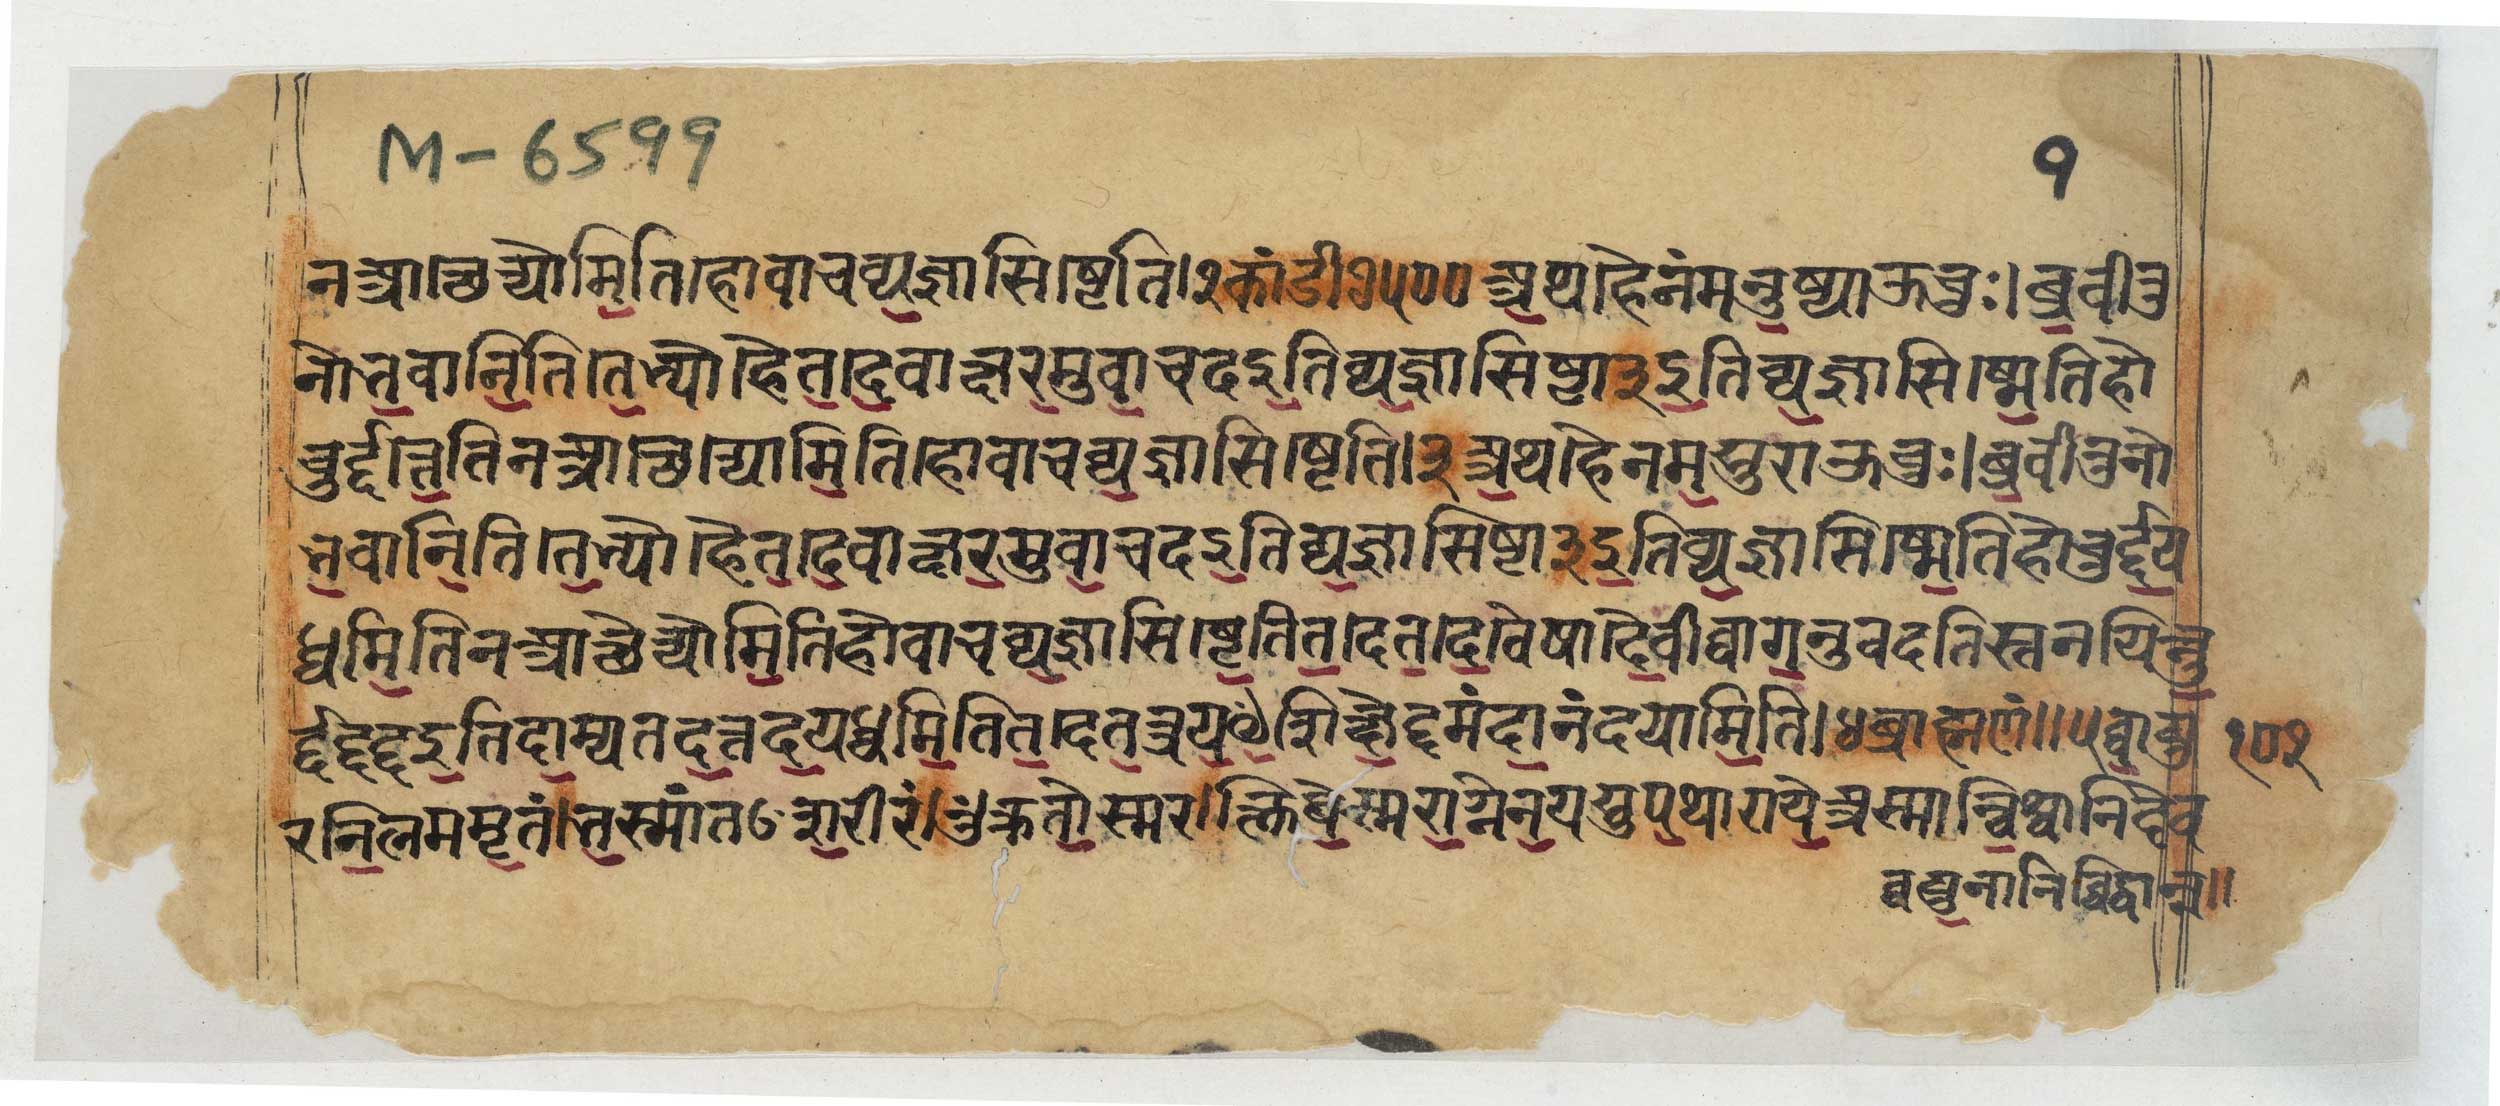 M-6599
१
नआत्थेत्योमितिहोवाचव्यज्ञासिष्टेति।२कांडी२५००अथहैनंमनुष्याऊचुः।ब्रवीतु
नोभवानितितेभ्योहैतदेवाक्षरमुवाचदइतिव्यज्ञासिष्टा३इतिव्यज्ञासिष्मेतिहो
चुर्द्दत्तेतिनआत्थेत्योमितिहोवाचव्यज्ञासिष्टेति।३अथहैनमसुराऊचुः।ब्रवीतुनो
भवानितितेभ्योहैतदेवाक्षरमुवाचदइतिव्यज्ञासिष्टा३इतिव्यज्ञासिष्मेतिहोचुर्द्दय
ध्वमितिनआत्थेत्योमितिहोवाचव्यज्ञासिष्टेतितदेतदेवैषादैवीवागनुवदतिस्तनयित्नु
र्द्दद्दद्दइतिदाम्यतदत्तदयध्वमितितदेतत्त्रयꣳशिक्षेद्दमंदानंदयामिति।४ब्राह्मणं॥५वायु
१०२
रनिलममृतं।भस्मांतꣳशरीरं।ॐक्रतोस्मर।क्लिबेस्मराग्नेनयसुपथारायेअस्मान्विश्वानिदेव
वयुनानिविद्वान्॥